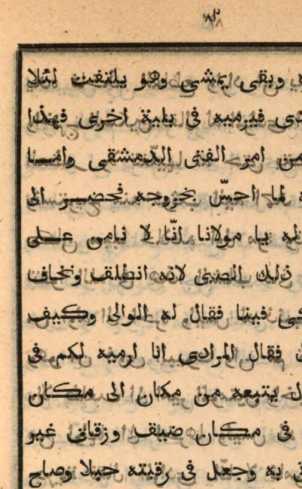 وبقى يمشى وهو يلتفت لئلا
فيرميه فى بلية اخرى فهذا
من امر الفتى الدمشقى وامـا
لما احسّ بخروجه فحضر الى
يا مولانا انّا لا نامن على
ذلك الصبى لانه انطلق ونخاف
فينا فقال له الوالى وكيف
فقال المرادى انا ارميه لكم فى
يتبعه من مكان الى مكان
فى مكان ضيق وزقاق غير
به وجعل فى رقبته حبلا وصاح